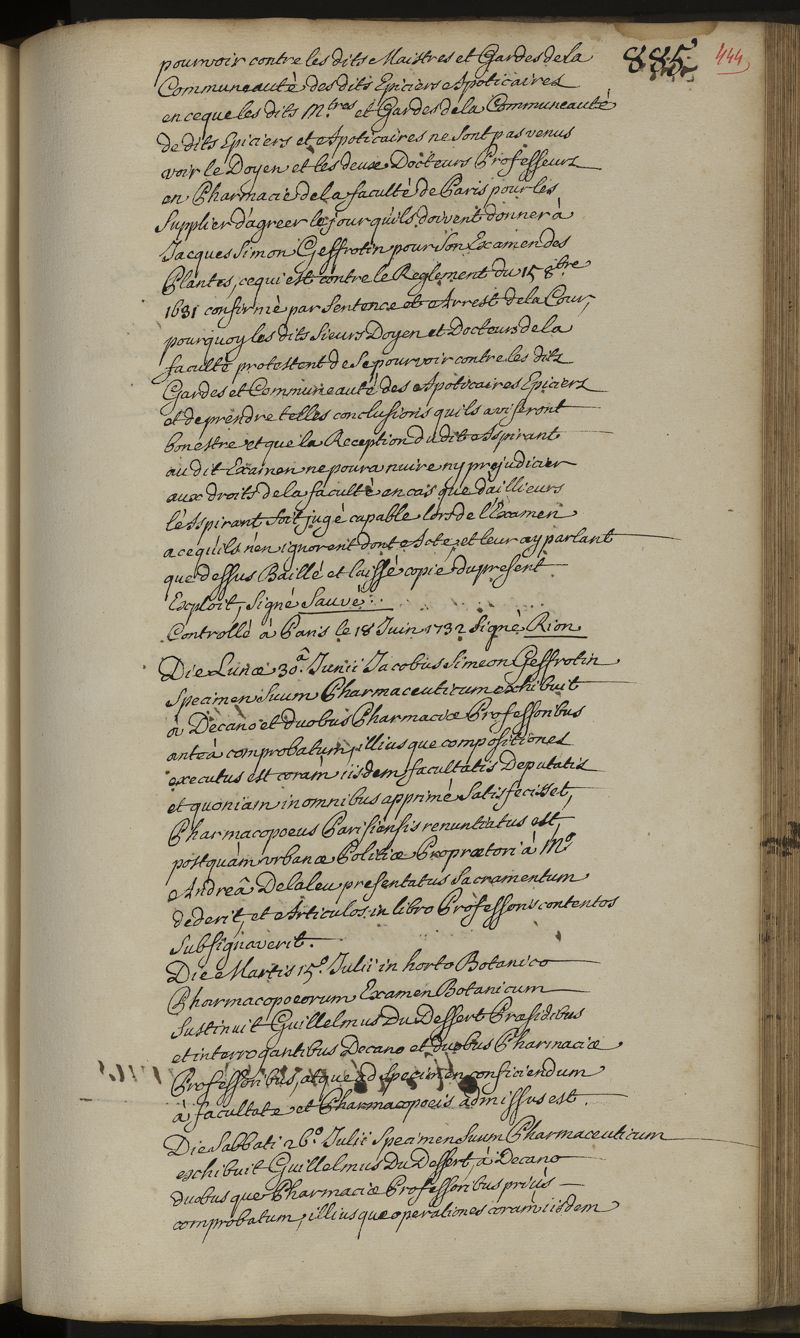 885 444
pourvoir contre les dits Maistres et Gardes de la
Communeauté des dits Epiciers Apoticaires
en ce que les dits M.tres et Gardes de la Communeauté
de dits Epiciers et Apoticaires ne sont pas venus
voir le Doyen et les deux Docteurs Professeurs
en Pharmacie de la faculté de Paris pour les
Supplier d'agreer le jour qu'ils doivent donner à
Jacques Simon Geffrotin pour son Examen des
Plantes, ce qui est contre le Reglement du 15 8.bre
1631 confirmé par Sentence et Arrest de la Cour,
pourquoy les dits Sieurs Doyen et Docteurs de la
faculté protestent de Se pourvoir contre les dits
Gardes et Communeauté des Apoticaires Epiciers
et de prendre telles conclusions qu'ils aviseront
bon estre et que la Reception du dit Aspirant
au dit Examen ne poura nuire ny prejudicier
aux droits de la faculté en cas que d'aillieurs
le Aspirant soit jugé capable lors de l'Examen
a ce qu'ils n'en ignorent dont Acte, et leur ay parlant
que dessus Baillé et laissé copie du present
Exploit, Signé Sauvé.
Controllé à Paris le 18 Juin 1732 Signé Rion
Die Lunæ 30.â Junii Jacobus Simeon Geffrotin
Specimen Suum Pharmaceuticum exhibuit
à Decano et duobus Pharmaciæ Professoribus
anteà comprobatum, illiusque compositiones
executus est coram iisdem facultatis Deputatis
et quoniam in omnibus apprimé Satisfecisset,
Pharmacopoeus Parisiensis renuntiatus est,
postquàm urbanæ Politiæ Propraetori à M.º
Andreâ Delaleu presentatus Sacramentum
dederit, et Articulos in libro Professoris contentos
Subsignaverit.
Die Martis 15.º Julii in horto Botanico
Pharmacopoeorum Examen Botanicum
Sustinuit Guillelmus Du Dessert Præsidibus
et interrogantibus Decano et duobus Pharmaciæ
Professoribus, atque ad specimen conficiendum
à facultate et Pharmacopoeis admissus est.
Die Sabbati 26.º Julii Specimen Suum Pharmaceuticum
exhibuit Guillelmus Du Dessert, à Decano
duobusque Pharmaciæ Professoribus priùs
comprobatum, illiusque operationes coram iisdem